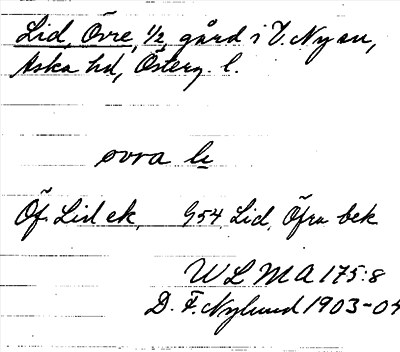 Lid, Övre, 1/2, gård i V. Ny sn,
Aska hd, Österg. l.
øvra li
Öf. Lid ek. G54 Lid, Öfra bek
WLMA 175:8
D. F. Nylund 1903-04